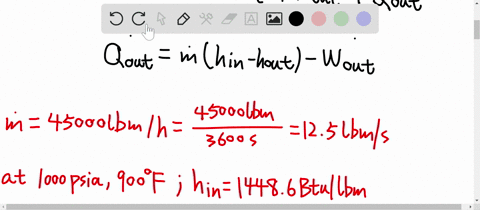 Q̇out = ṁ(hin-hout) - Ẇout
ṁ = 45000 lbm/h = 45000lbm/3600 s = 12.5 lbm/s
at 1000psia, 900°F ; hin = 1448.6 Btu/lbm